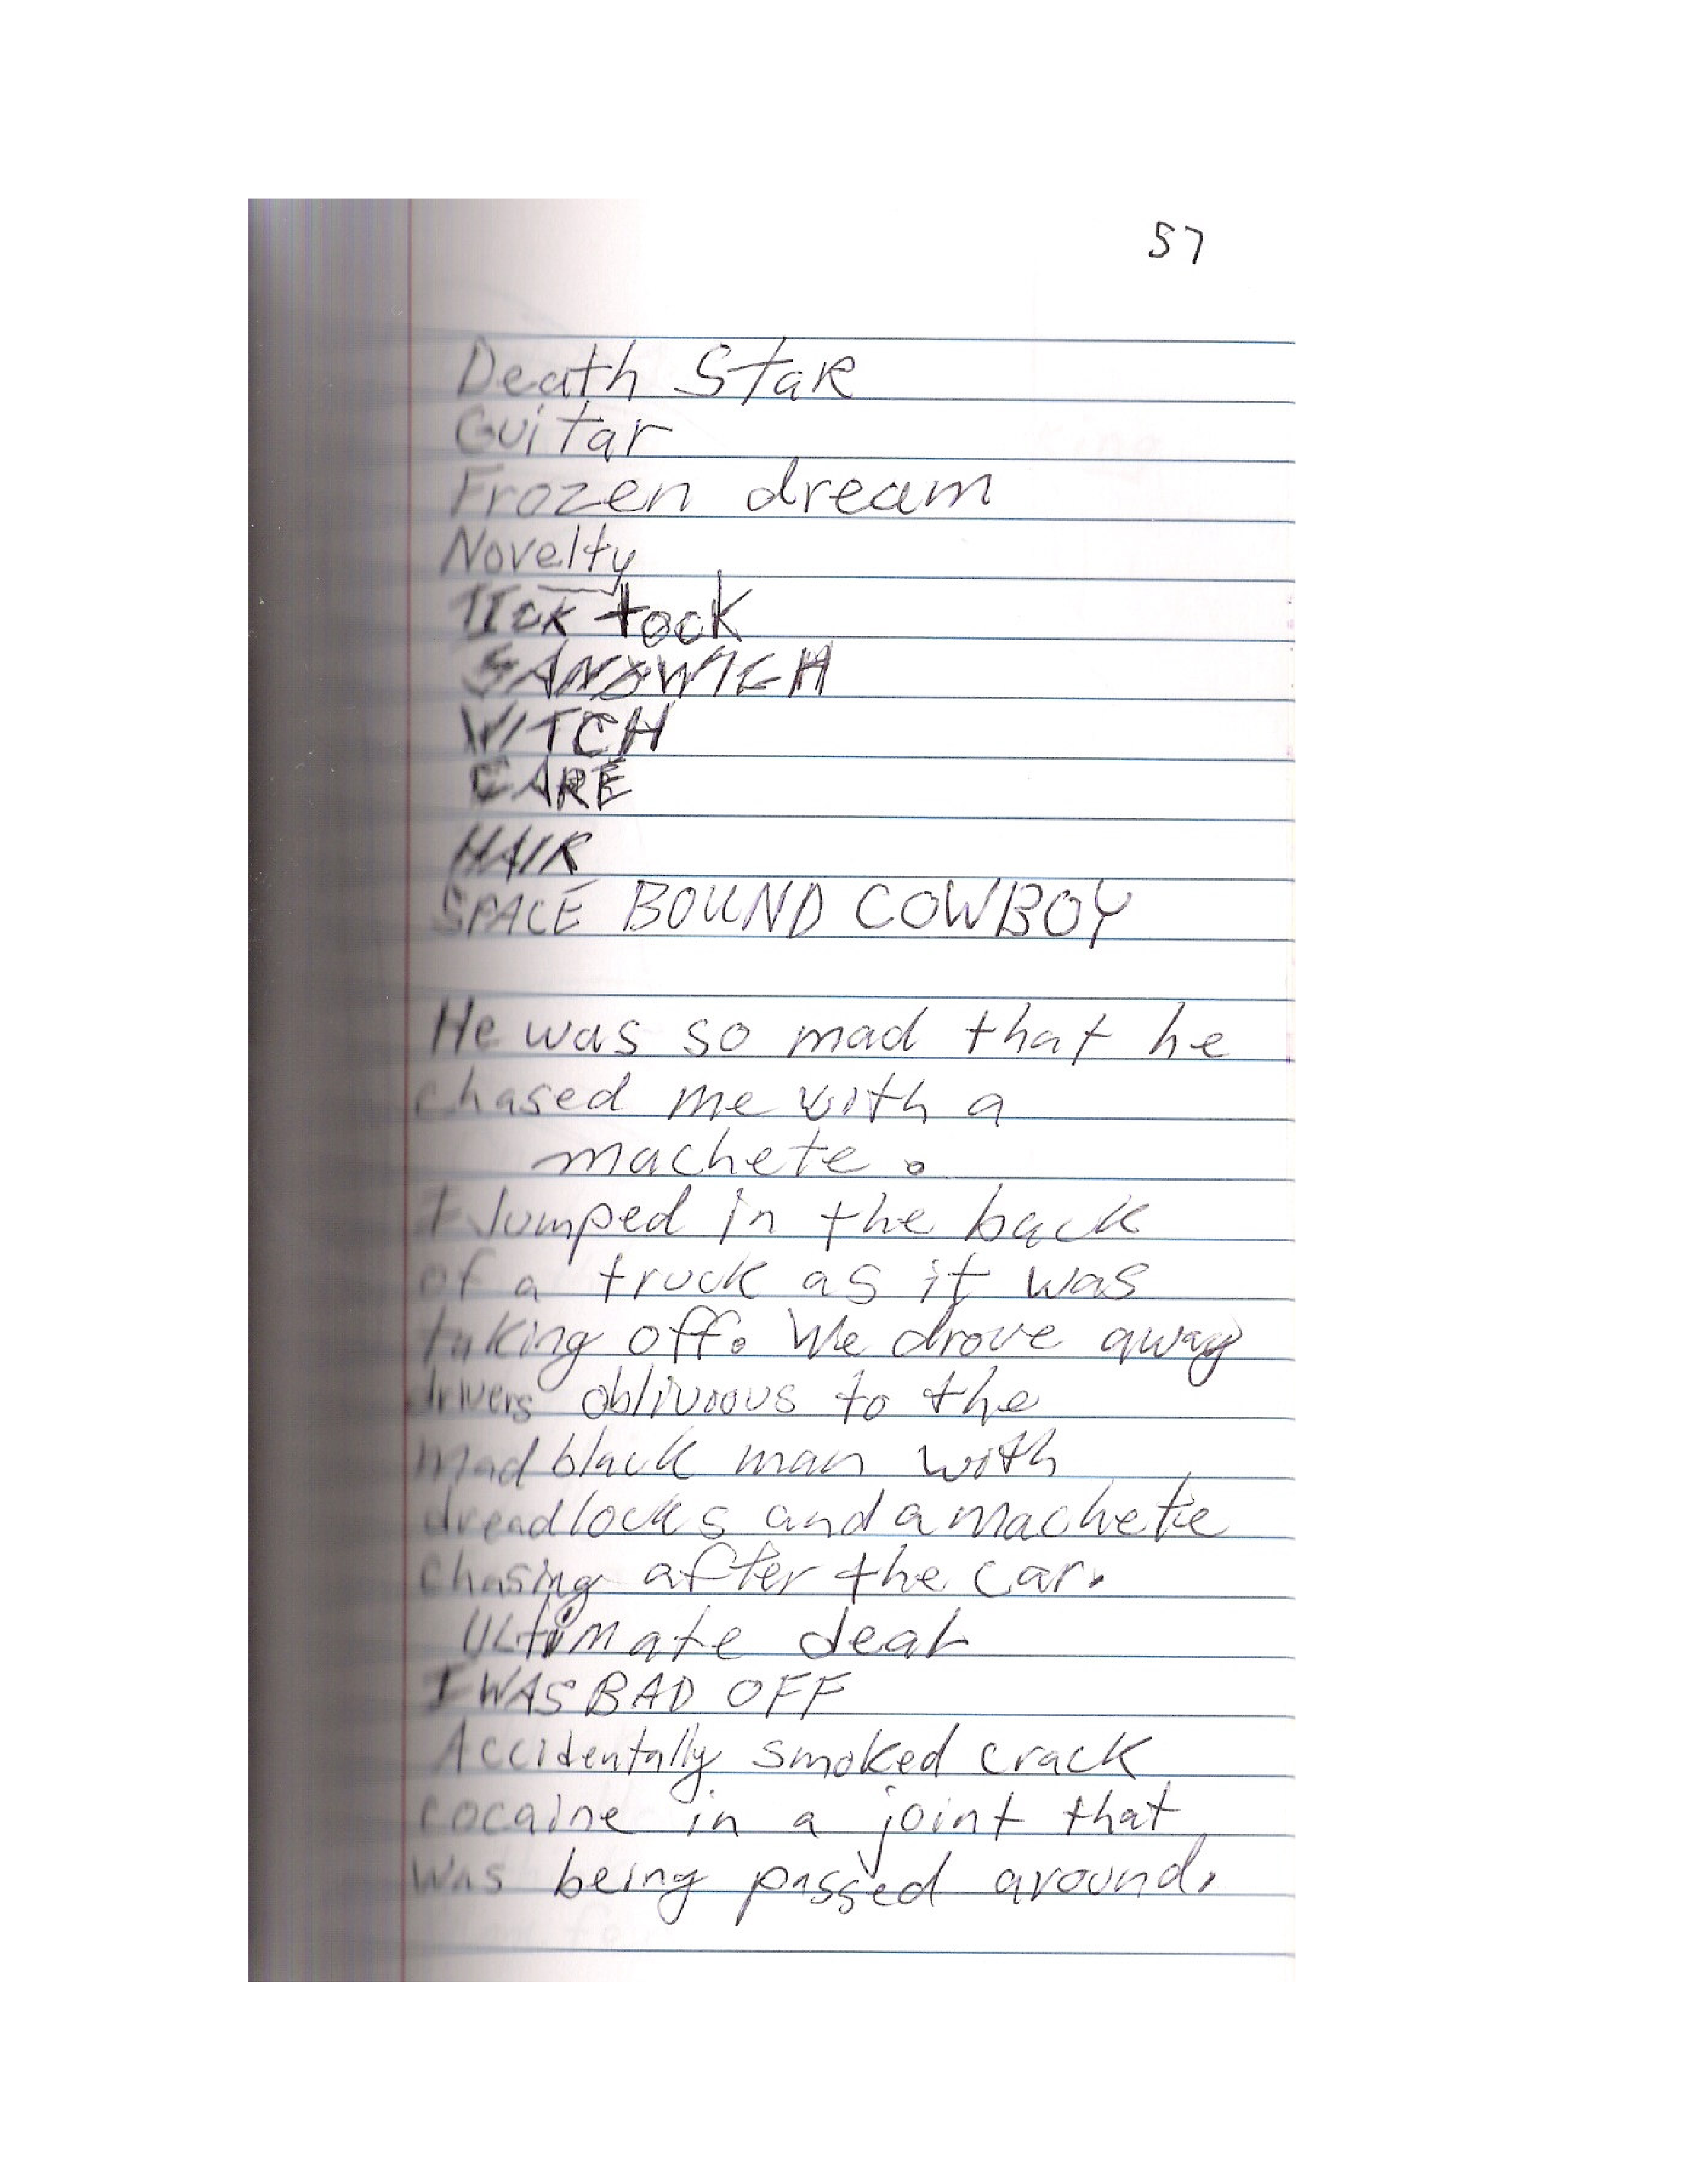 57
Death Star
Guitar
Frozen dream
Novelty
TIck tock
SANDWICH
WITCH
CARE
HAIR
SPACE BOUND COWBOY
He was so mad that he
chased me with a
machete.
I Jumped in the back
of a truck as it was
taking off. We drove away
drivers oblivious to the
mad black man with
dreadlocks and a machete
chasing after the car.
ULtiMate dear
I WAS BAD OFF
Accidentally smoked crack
cocaine in a joint that
was being passed around.